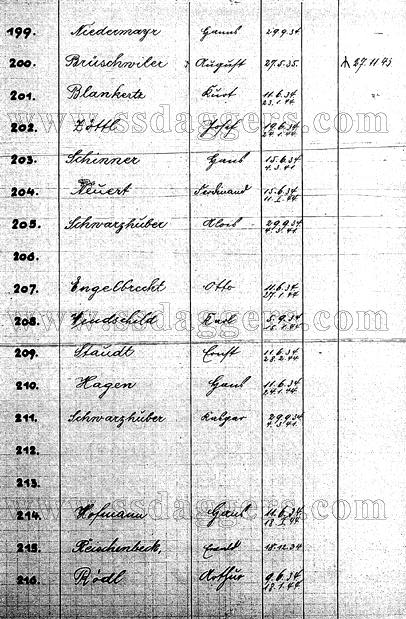 199. Niedermayr Hanns 29.9.34
200. Brüschwiler August 27.5.35. 27.11.43
201. Blankertz Kurt 11.6.34
23.1.44
202. Zöttl Josef 19.6.34
24.1.44
www.ssdaggers.com
203. Schinner Hans 15.6.34
4.3.41
204. Neuert Ferdinand 15.6.34
11.I.44
205. Schwarzhuber Alois 29.9.34
4.3.41
206.
207. Engelbrecht Otto 11.6.34
27.1.44
208. Windschild Karl 5.9.34
15.1.44
www.ssdaggers.com
209. Staudt Ernst 11.6.34
28.2.44
210. Hagen Hans 11.6.34
24.1.44
211. Schwarzhuber Kaspar 29.9.34
4.3.41.
212.
213.
www.ssdaggers.com
214. Hofmann Hans 11.6.34
18.I.44
215. Reischenbeck, Ewald 18.12.34
216. Rödl Arthur 9.6.34
18.1.44